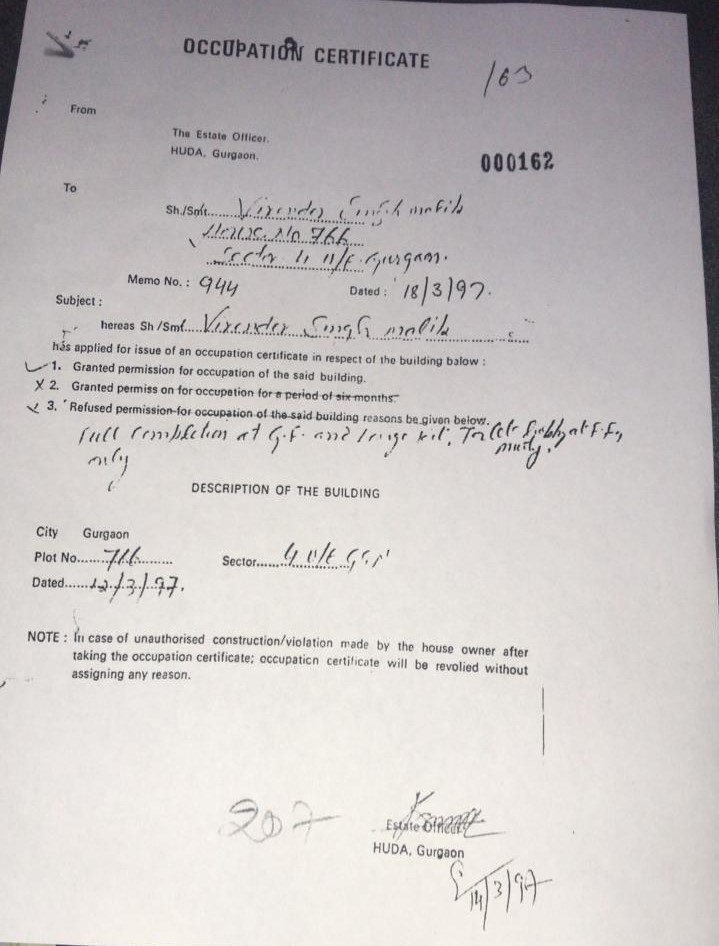 OCCUPATION CERTIFICATE
/63
From
The Estate Officer.
HUDA, Gurgaon.
000162
To
Sh./Smt....... Virender Singh malik
House No 766
Sector 4 U/E Gurgaon.
Memo No. : 944 Dated : 18/3/97.
Subject :
hereas Sh /Smt.... Virender Singh malik
has applied for issue of an occupation certificate in respect of the building balow :
1. Granted permission for occupation of the said building.
X 2. Granted permiss on for occupetion for a period of six months.
3. Refused permission for occupation of the said building reasons be given below.
Full completion at G.F. and Toilet at F.F.
only
DESCRIPTION OF THE BUILDING
City Gurgaon
Plot No....... 766 Sector...... 4 U/E GGN
Dated...... 12/3/97.
NOTE : In case of unauthorised construction/violation made by the house owner after
taking the occupation certificate; occupaticn certificate will be revolied without
assigning any reason.
207
Estate Officer
HUDA, Gurgaon
14/3/97